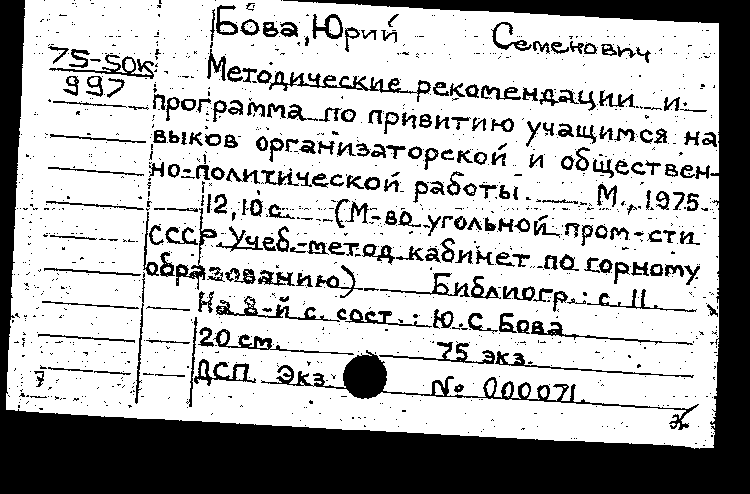 Бова, Юрий Семенович
75-50к
997
Методические рекомендации и
программа по привитию учащимся на
выков организаторской и обществен-
но-политической работы. М., 1975.
12,10 с. (М-во угольной пром-сти
СССР. Учеб.-метод. кабинет по горному
образованию) Библиогр.: с. 11.
На 8-й с. сост.: Ю.С. Бова
20 см. 75 экз.
ДСП Экз № 000071.